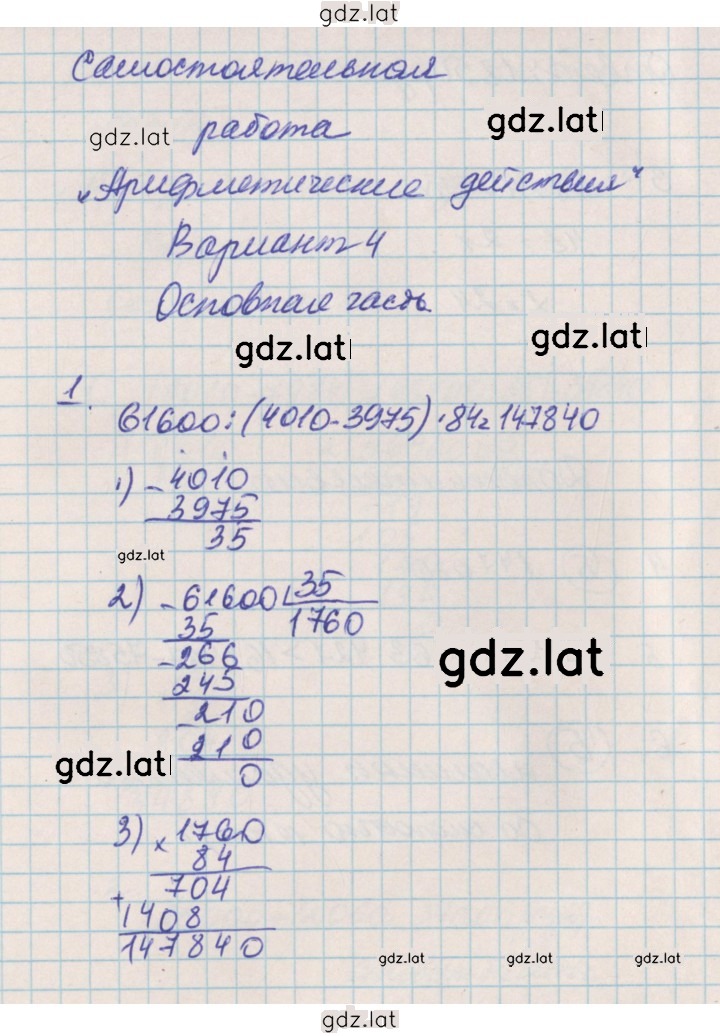 gdz.lat
Самостоятельная
gdz.lat работа gdz.lat
„Арифметические действия"
Вариант 4
Основная часть.
gdz.lat gdz.lat
1.
61600:(4010-3975)·84=147840
1) - 4010
3975
35
gdz.lat
2) - 61600 35
35 1760
- 266 gdz.lat
245
- 210
210
gdz.lat 0
3) × 1760
84
704
+ 1408
147840
gdz.lat gdz.lat gdz.lat
gdz.lat